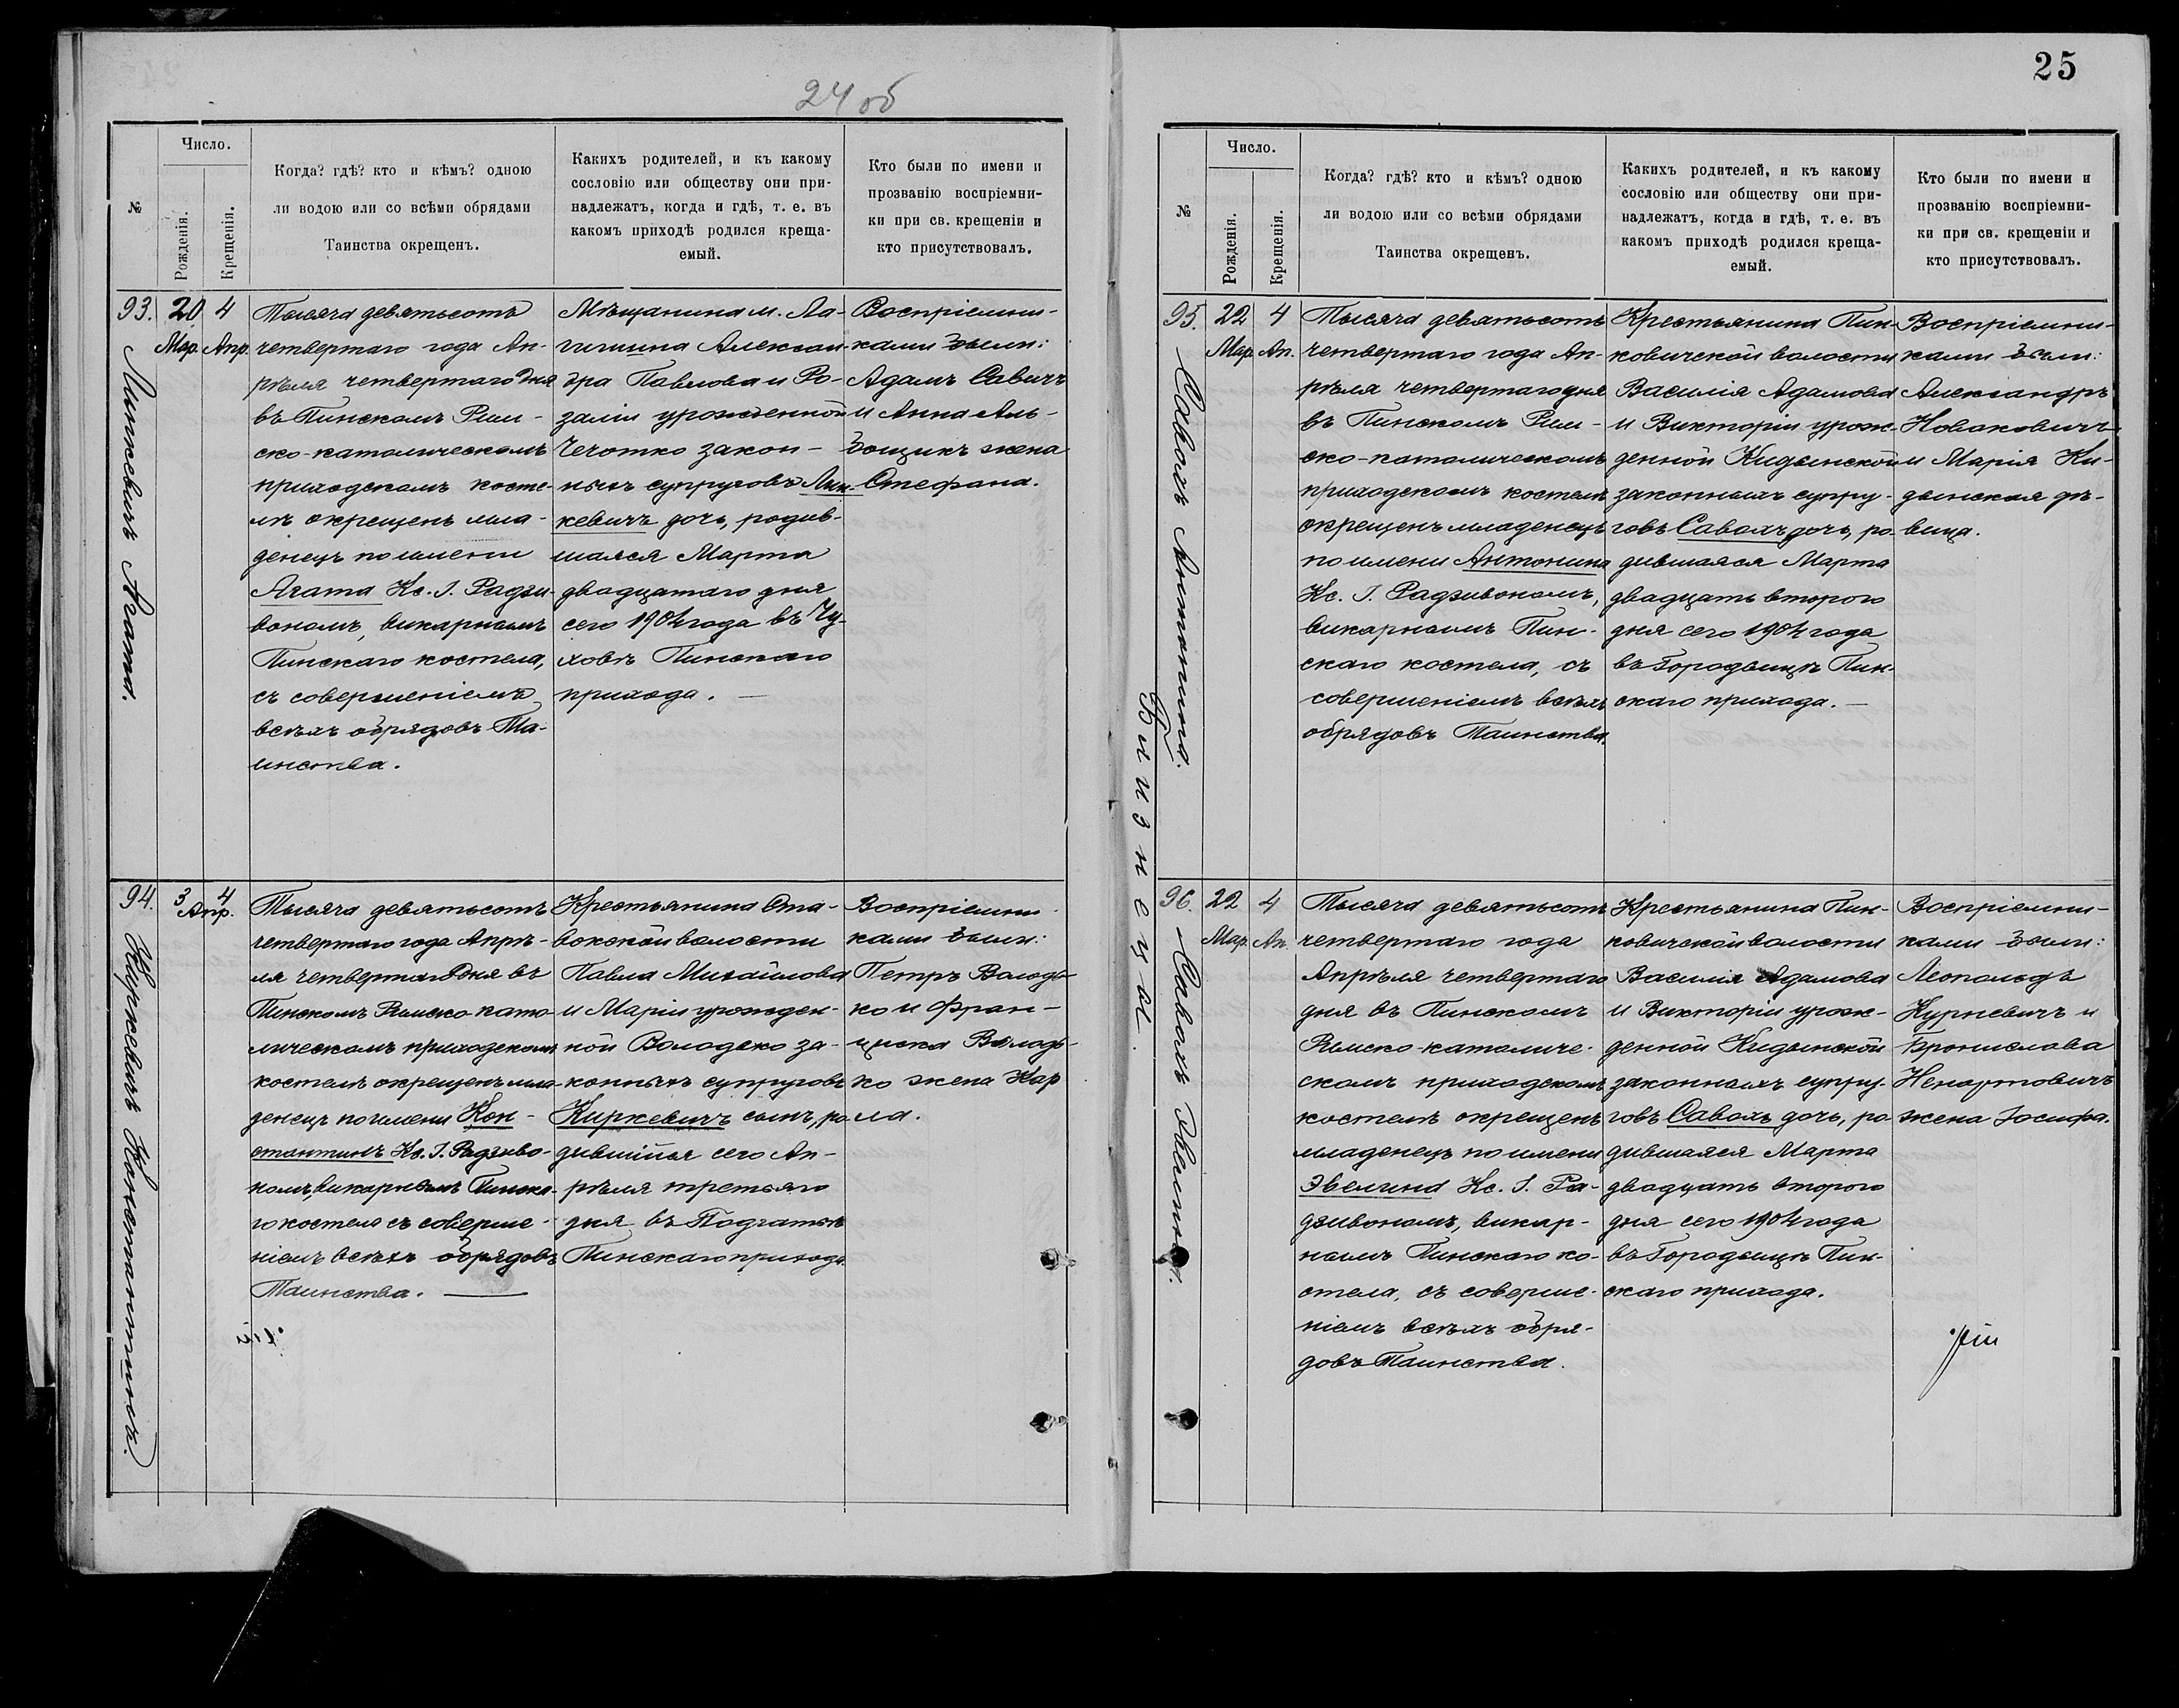 24 об
Число.
№
Рожденія.
Крещенія.
Когда? гдѣ? кто и кѣмъ? одною
ли водою или со всѣми обрядами
Таинства окрещенъ.
Какихъ родителей, и къ какому
сословію или обществу они при-
надлежатъ, когда и гдѣ, т. е. въ
какомъ приходѣ родился креща-
емый.
Кто были по имени и
прозванію воспріемни-
ки при св. крещеніи и
кто присутствовалъ.
93.
20 Мар.
4 Апр.
Линкевичъ Агата.
Тысяча девятьсотъ
четвертаго года Ап-
рѣля четвертаго дня
въ Пинскомъ Рим-
ско-католическомъ
приходскомъ косте-
лѣ окрещенъ мла-
денецъ по имени
Агата Кс. І. Радзи-
вономъ, викарнымъ
Пинскаго костела,
съ совершеніемъ
всѣхъ обрядовъ Та-
инства.
Мѣщанина м. Ло-
гишина Алексан-
дра Павлова и Ро-
заліи урожденной
Чечотко закон-
ныхъ супруговъ Лин-
кевичъ дочь, родив-
шаяся Марта
двадцатаго дня
сего 1904 года въ Чу-
ховѣ Пинскаго
прихода. —
Воспріемни-
ками были:
Адамъ Савичъ
и Анна Аль-
бощикъ жена
Стефана.
94.
3 4
Апр.
Киркевичъ Константинъ.
Тысяча девятьсотъ
четвертаго года Апрѣ-
ля четвертаго дня въ
Пинскомъ Римско-като-
лическомъ приходскомъ
костелѣ окрещенъ мла-
денецъ по имени Кон-
стантинъ Кс. І. Радзиво-
номъ, викарнымъ Пинска-
го костела съ соверше-
ніемъ всѣхъ обрядовъ
Таинства. —
Крестьянина Ста-
вокской волости
Павла Михайлова
и Маріи урожден-
ной Володько за-
конныхъ супруговъ
Киркевичъ сынъ, ро-
дившійся сего Ап-
рѣля третьяго
дня въ Подгатьѣ
Пинскаго прихода.
Воспріемни-
ками были:
Петръ Володь-
ко и Фран-
циска Володь-
ко жена Кар
ла.
25
Число.
№
Рожденія.
Крещенія.
Когда? гдѣ? кто и кѣмъ? одною
ли водою или со всѣми обрядами
Таинства окрещенъ.
Какихъ родителей, и къ какому
сословію или обществу они при-
надлежатъ, когда и гдѣ, т. е. въ
какомъ приходѣ родился креща-
емый.
Кто были по имени и
прозванію воспріемни-
ки при св. крещеніи и
кто присутствовалъ.
95.
22 Мар.
4 Ап.
Совохъ Антонина.
Близнецы.
Тысяча девятьсотъ
четвертаго года Ап-
рѣля четвертаго дня
въ Пинскомъ Рим-
ско-католическомъ
приходскомъ костелѣ
окрещенъ младенецъ
по имени Антонина
Кс. І. Радзивономъ,
викарнымъ Пин-
скаго костела, съ
совершеніемъ всѣхъ
обрядовъ Таинства.
Крестьянина Пин-
ковичской волости
Василія Адамова
и Викторіи урож-
денной Кидынской
законныхъ супру-
говъ Савохъ дочь, ро-
дившаяся Марта
двадцать второго
дня сего 1904 года
въ Городыщѣ Пин-
скаго прихода. —
Воспріемни-
ками были:
Александръ
Новаковичъ
и Марія Ки-
дынская дѣ-
вица.
96.
22 Мар.
4 Ап.
Савохъ Эвелина.
Тысяча девятьсотъ
четвертаго года
Апрѣля четвертаго
дня въ Пинскомъ
Римско-католиче-
скомъ приходскомъ
костелѣ окрещенъ
младенецъ по имени
Эвелина Кс. І. Ра-
дзивономъ, викар-
нымъ Пинскаго ко-
стела, съ соверше-
ніемъ всѣхъ обря-
довъ Таинства.
Крестьянина Пин-
ковичской волости
Василія Адамова
и Викторіи урож-
денной Кидынской
законныхъ супру-
говъ Савохъ дочь, ро-
дившаяся Марта
двадцать второго
дня сего 1904 года
въ Городыщѣ Пин-
скаго прихода.
Воспріемни-
ками были:
Леопольдъ
Курневичъ и
Брониславa
Ненартовичъ
жена Іосифа.